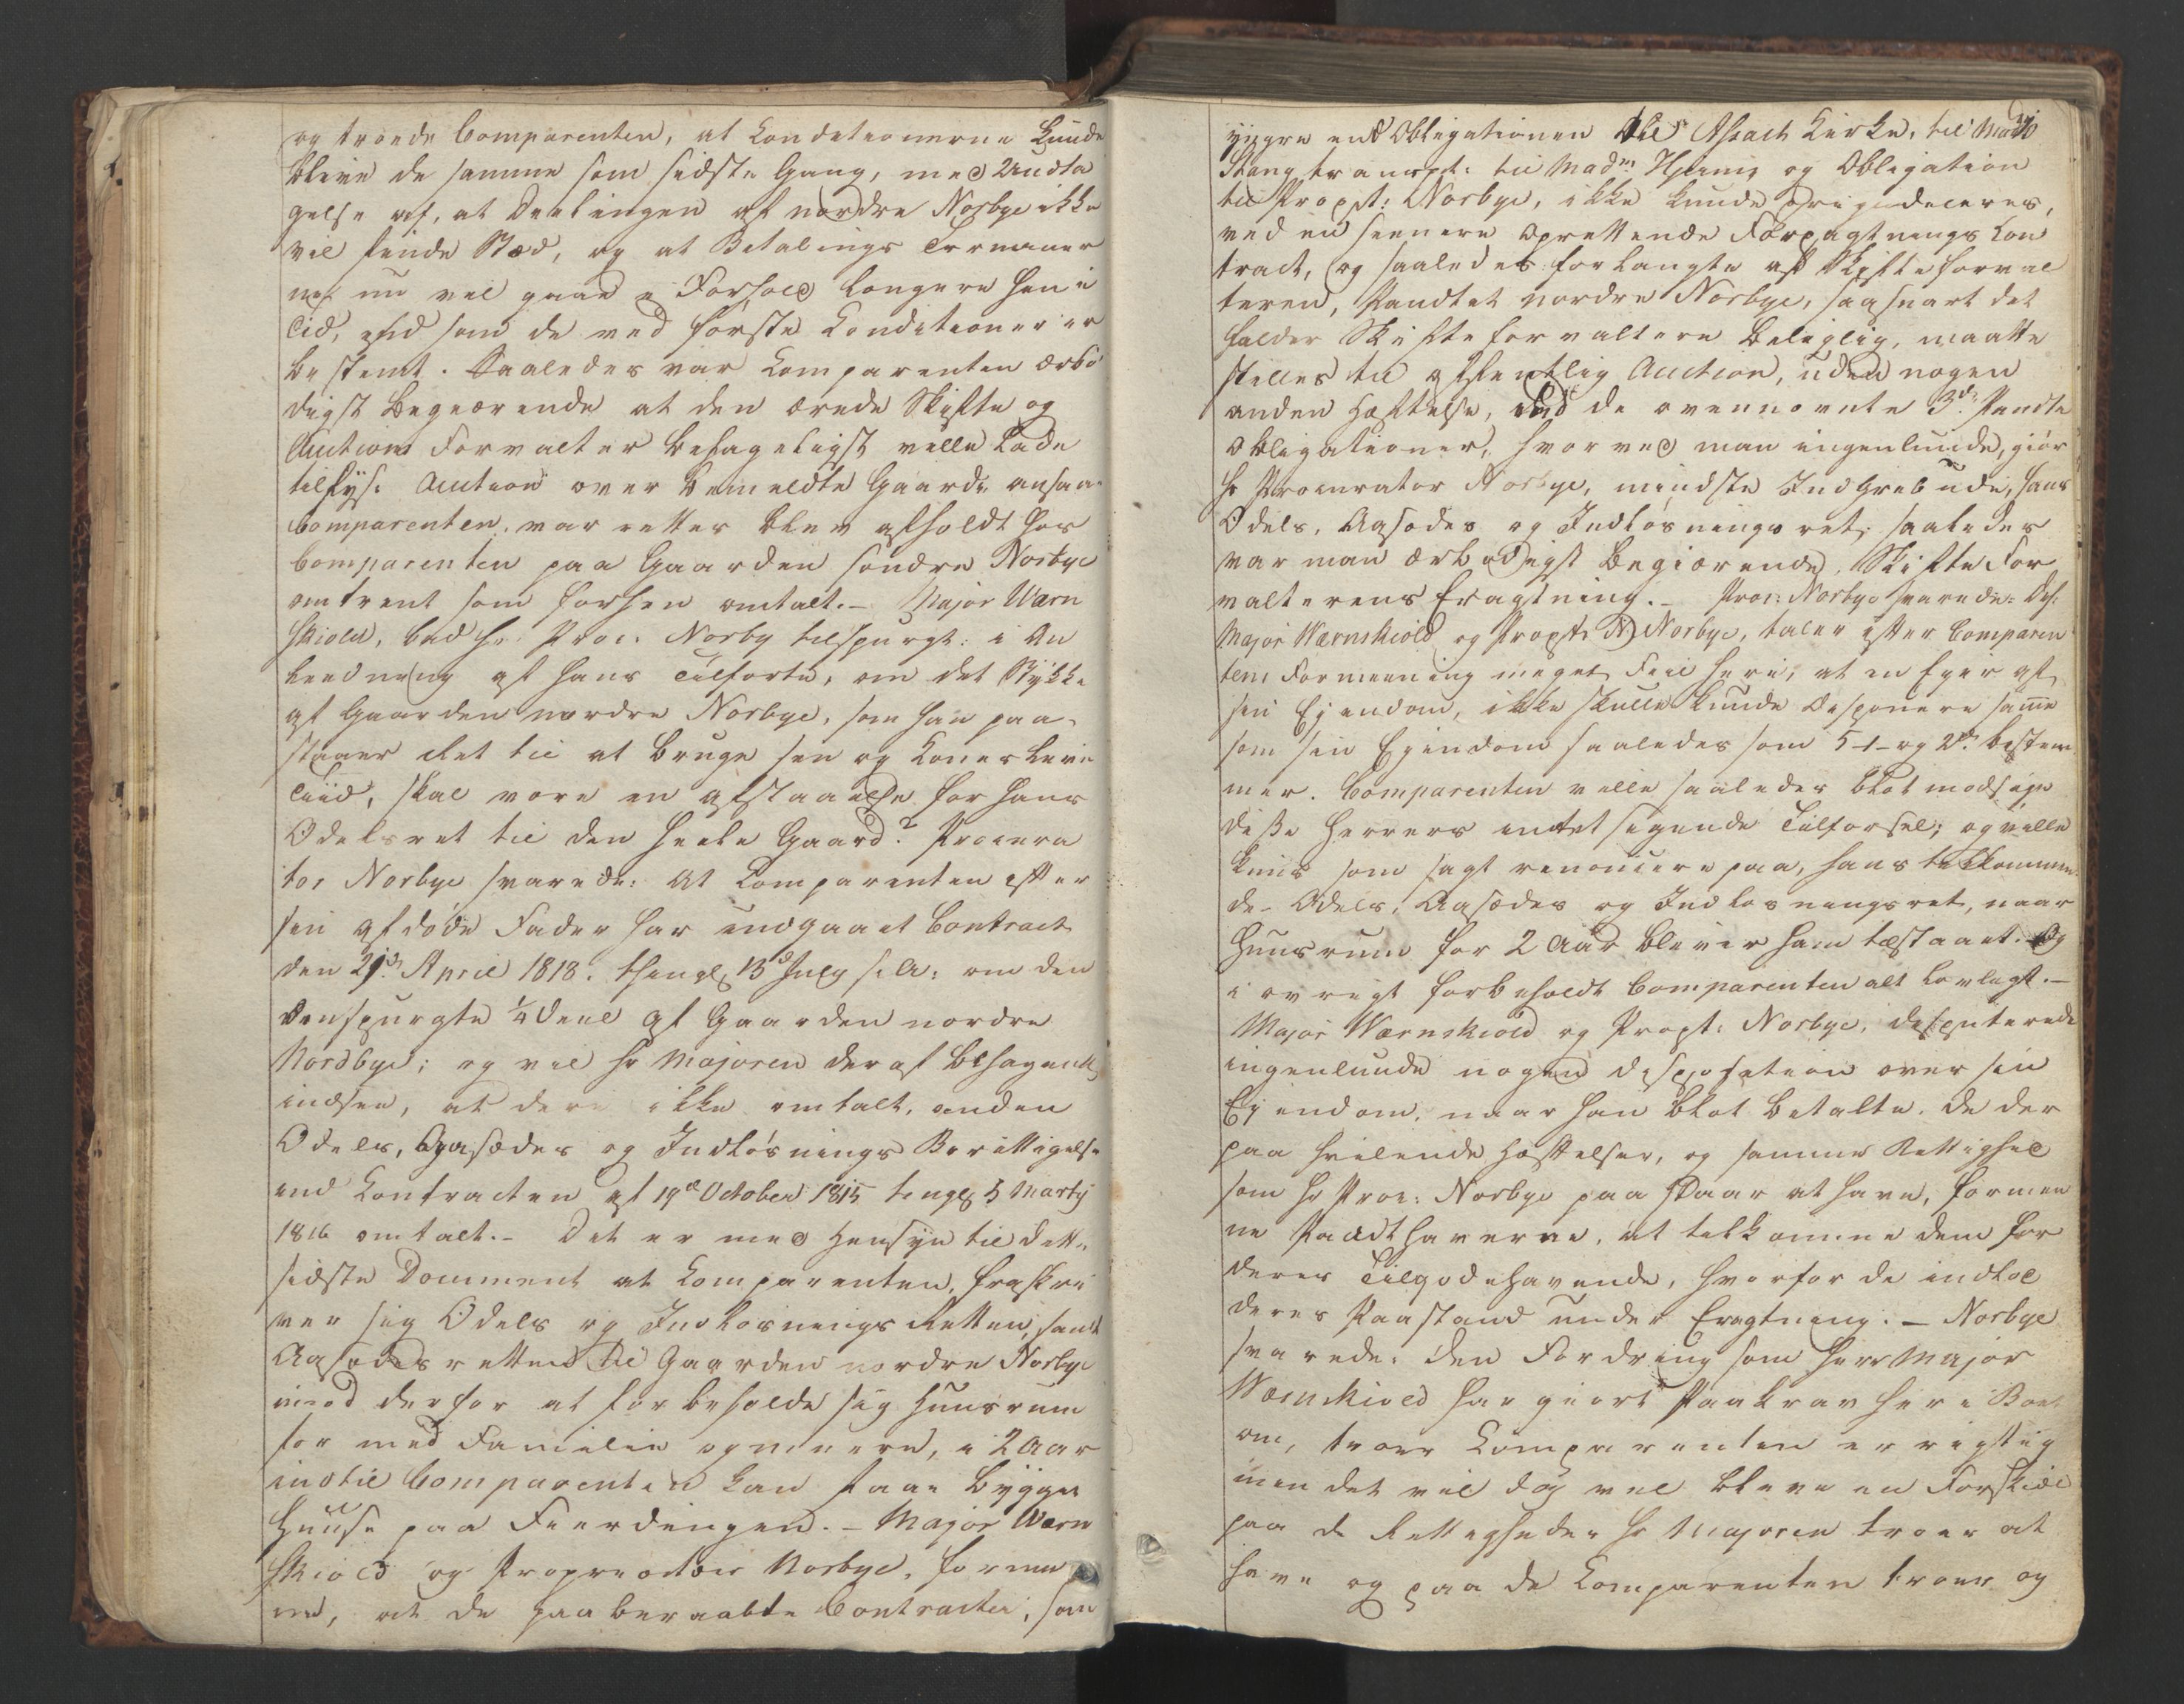 og troede Comparenten, at Conditionerne kunde
blive de samme som sidste Gang, med Undta
gelse af, at Deelingen af nordre Norbye ikke
vil finde Stæd, og at Betalings Terminer
ne nu vel gaae i Forhold længere hen i
Tid, end som de ved første Conditioner er
bestemt. Saaledes var Comparenten ærbø
digst begiærende at den ærede Skifte og
Auctions Forvalter behageligst ville lade
tillyse Auction over bemeldte Gaarde ansaae
Comparenten var rettes blev afholdt hos
Comparenten paa Gaarden søndre Norbye
omtrent som forhen omtalt. - Major Wærn
skiold, bad Hr. Proc: Norby tilspurgt: i An
leedning af hans Tilførte, om det Stykke
af Gaarden nordre Norbye, som han paa-
staaer Ret til at bruge sin og Kones Livs
Tiid, skal være en afstaaelse for hans
Odelsret til den heele Gaard? Procura
tor Norbye svarede: At Comparenten efter
sin afdøde Fader har indgaaet Contract
den 21d. April 1818. thingl. 13d July s. A: om den
omspurgte 1/4 Deel af Gaarden nordre
Nordbye; og vil Hr Majoren deraf behageligst
indsee, at der ikke omtalt, anden
Odels, Aasædes og Indløsnings Berettigelse
end Contracten af 19d October 1815 tingl 5 Martj
1816 omtalt. - Det er med Hensyn til dette
sidste Document at Comparenten, fraskri
ver sig Odels og Indløsnings Retten, samt
Aasædesretten til Gaarden nordre Norbye
imod derfor at forbeholde sig Huusrum
for med Familie og, i 2 Aar
indtil Comparenten kan faae bygget
Huuse paa Fierdingen. - Major Wærn
skiold og Proprietair Norbye, formee
ne, at de paaberaabte Contracter, som
yngre end Obligationen til Assach Kirke, til Madm
Stang transpt: til Madm Hjelm og Obligation
til Propt: Norbye, ikke kunde præjudiceres,
ved en senere oprettende Forpagtnings Con
tract, og saaledes forlangte af Skifteforval
teren, Pandtet nordre Norbye, saasnart det
falder Skifteforvaltere beleglig, maatte
stilles til offentlig Auction, uden nogen
anden Hæftelse, end de ovennævnte 3de Pandte
Obligationer, hvorved man ingenlunde, giør
Hr Procurator Norbye, mindste Indgreb i, hans
Odels, Aasædes og Indløsnings ret; saaledes
var man ærbødigst begiærende, Skifte For
valterens Eragtning. - Proc: Norbye svarede: Hr:
Major Wærnskiold og Propt: N Norbye, taler efter Comparen
tens Formeening meget Feil heri, at en Eyer af
sin Ejendom, ikke skulle kunde disponere samme
som sin Ejendom saaledes som 5-1- og 2d: bestem
mer. Comparenten ville saaledes blot modsige
disse Herrers intet sigende Tilførsel; og ville
kuns som sagt renoncere paa, hans tilkommen
de Odels, Aasædes og Indløsningsret, naar
Huusrum for 2 Aar bliver ham tilstaaet. Og
i øvrigt forbeholdt Comparenten alt lovligt. -
Major Wærnskiold og Propt: Norbye, disputerede
ingenlunde nogen disposition over sin
Ejendom, naar han blot betalte de der
paa hvilende Hæftelser, og samme Rettighed
som Hr Proc: Norbye paastaar at have, formee
ne Pandthaverne, at tilkomme dem for
deres Tilgodehavende, hvorfor de indlod
deres Paastand under Eragtning. - Norbye
svarede: den Fordring som Herr Major
Wærnskiold har giort Paakrav her i Boet
om, troer Comparenten er rigtig
men det vil dog vel blive en Forskiel
paa de Rettigheder Hr Majoren troer at
have og paa de Comparenten troer og